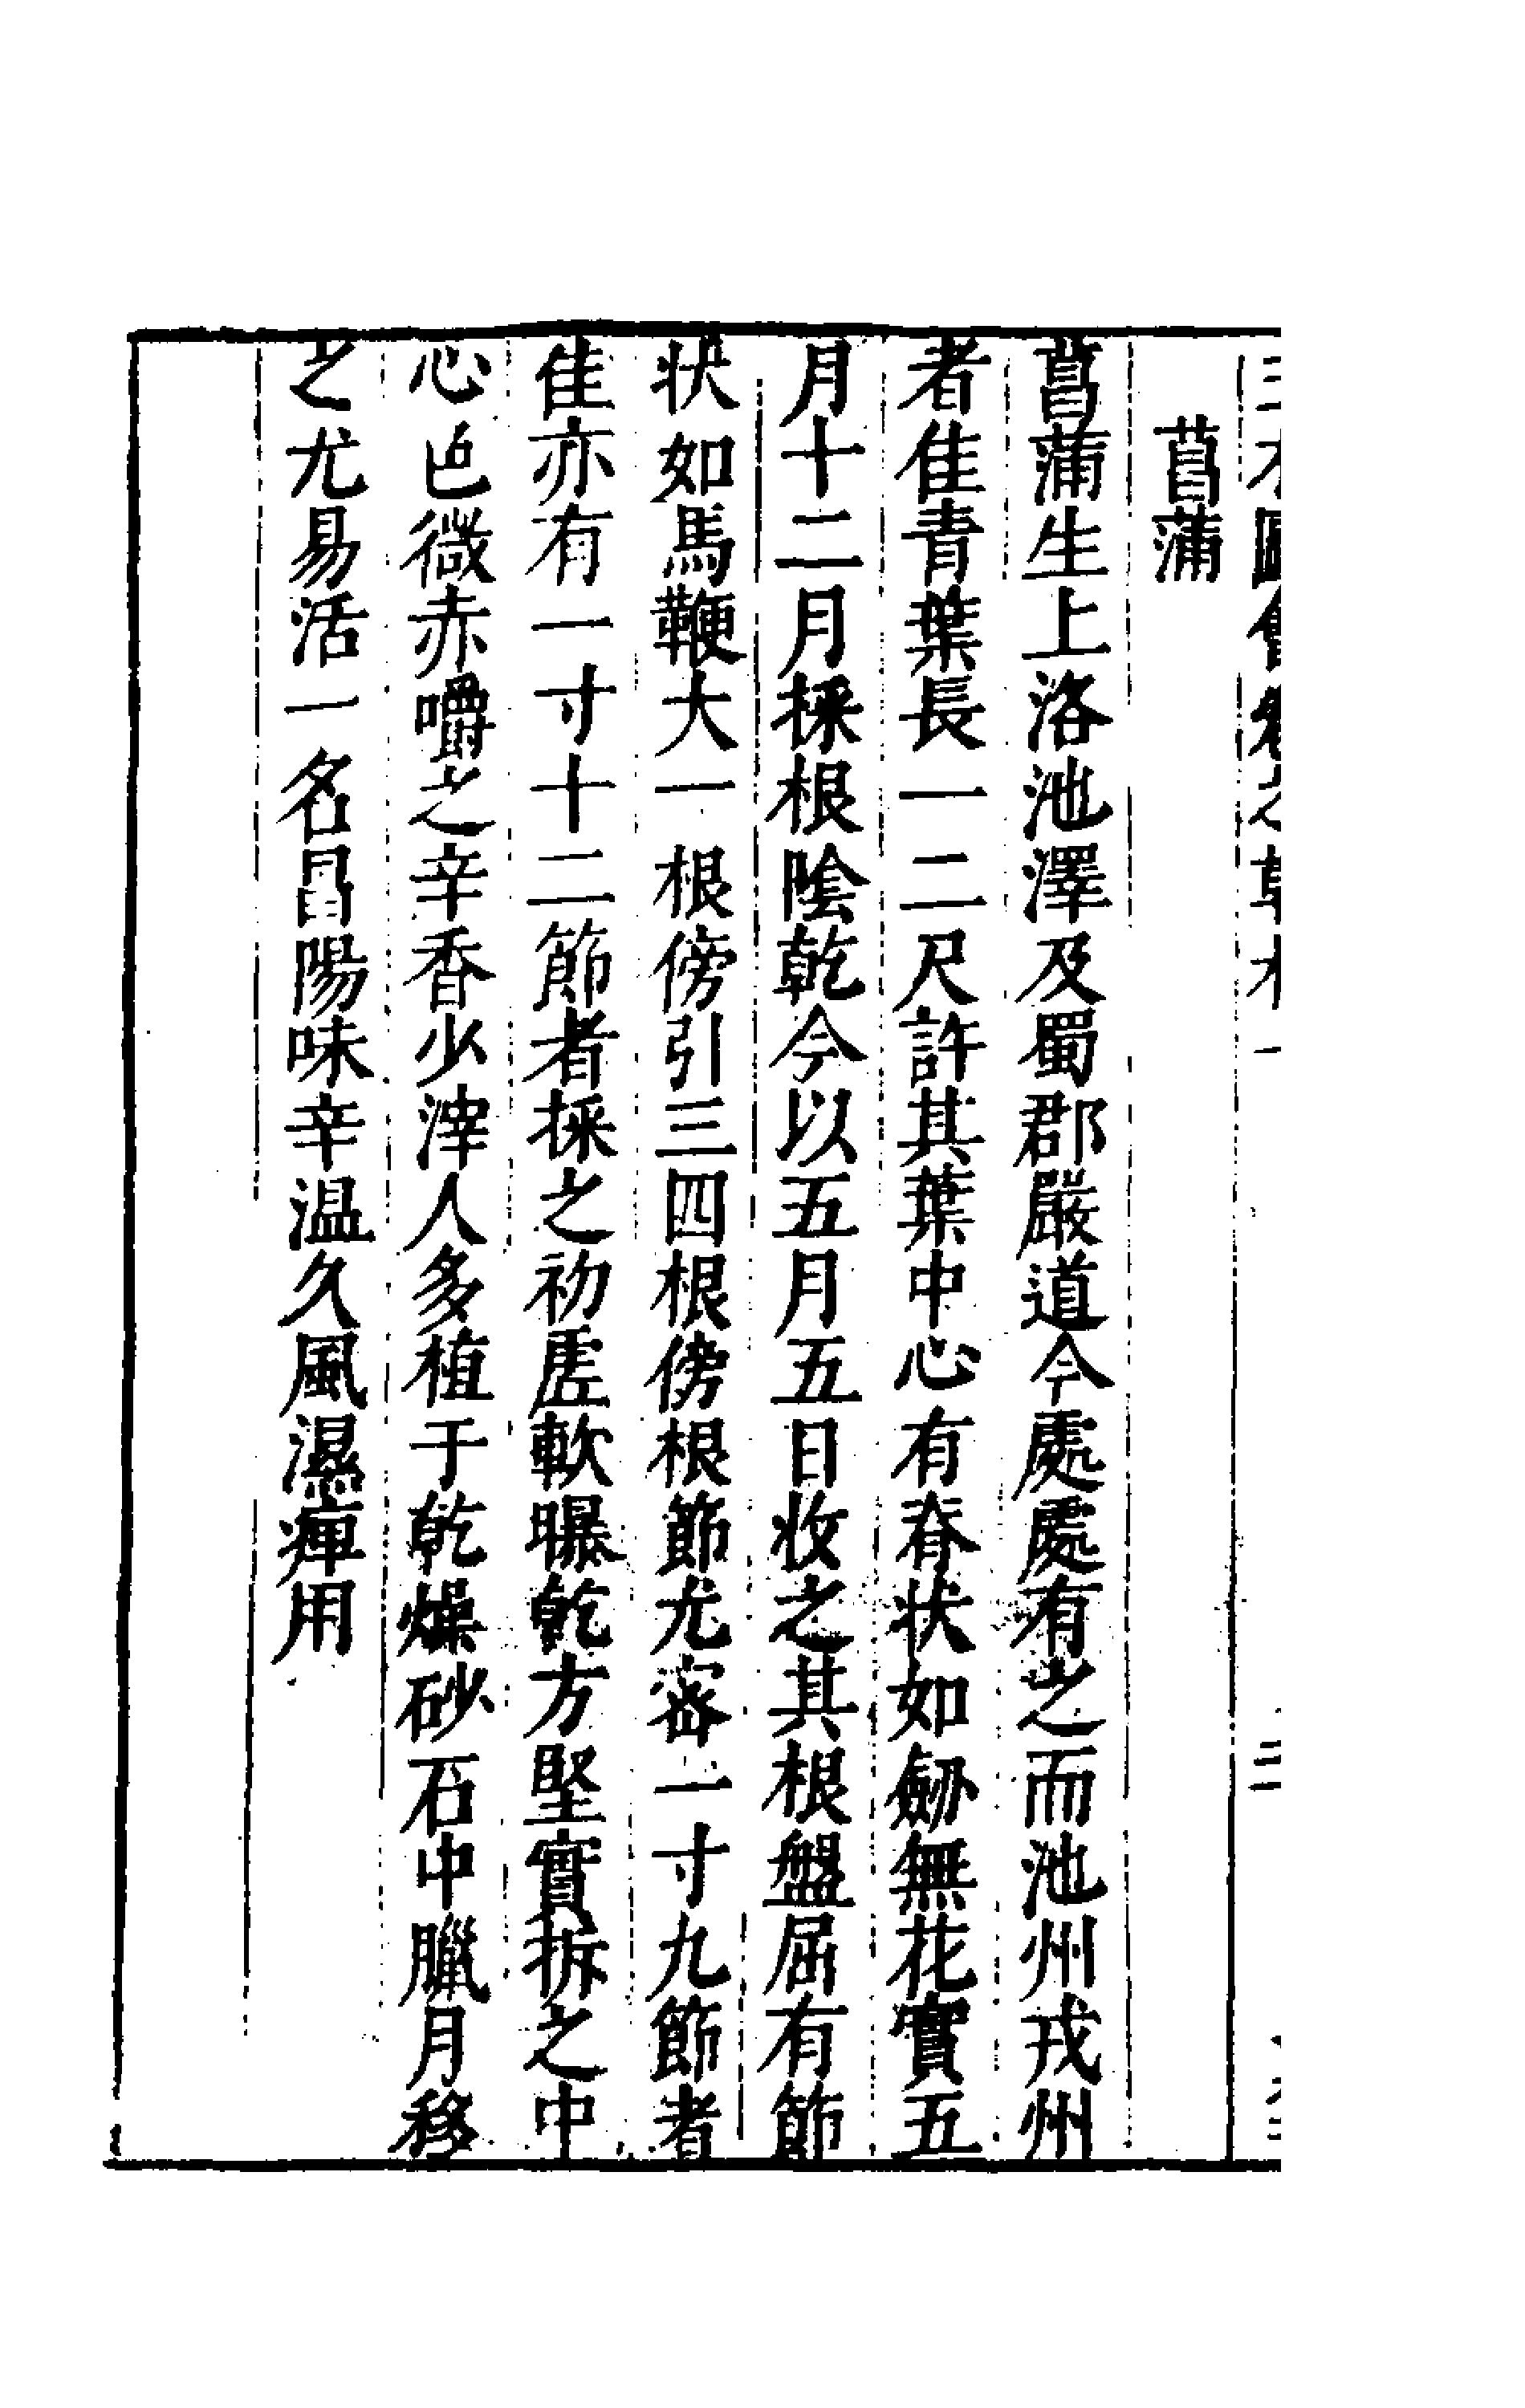 菖蒲
菖蒲生上洛池澤及蜀郡嚴道今處處有之而池州戎州
者佳青葉長一二尺許其葉中心有脊状如劒無花實五
月十二月採根陰乾今以五月五日收之其根盤屈有節
状如馬鞭大一根傍引三四根傍根節尤密一寸九節者
佳亦有一寸十二節者採之初虛軟曝乾方堅實折之中
心色微赤嚼之辛香少滓人多植于乾燥砂石中臘月移
之尤易活一名昌陽味辛温久風濕痺用